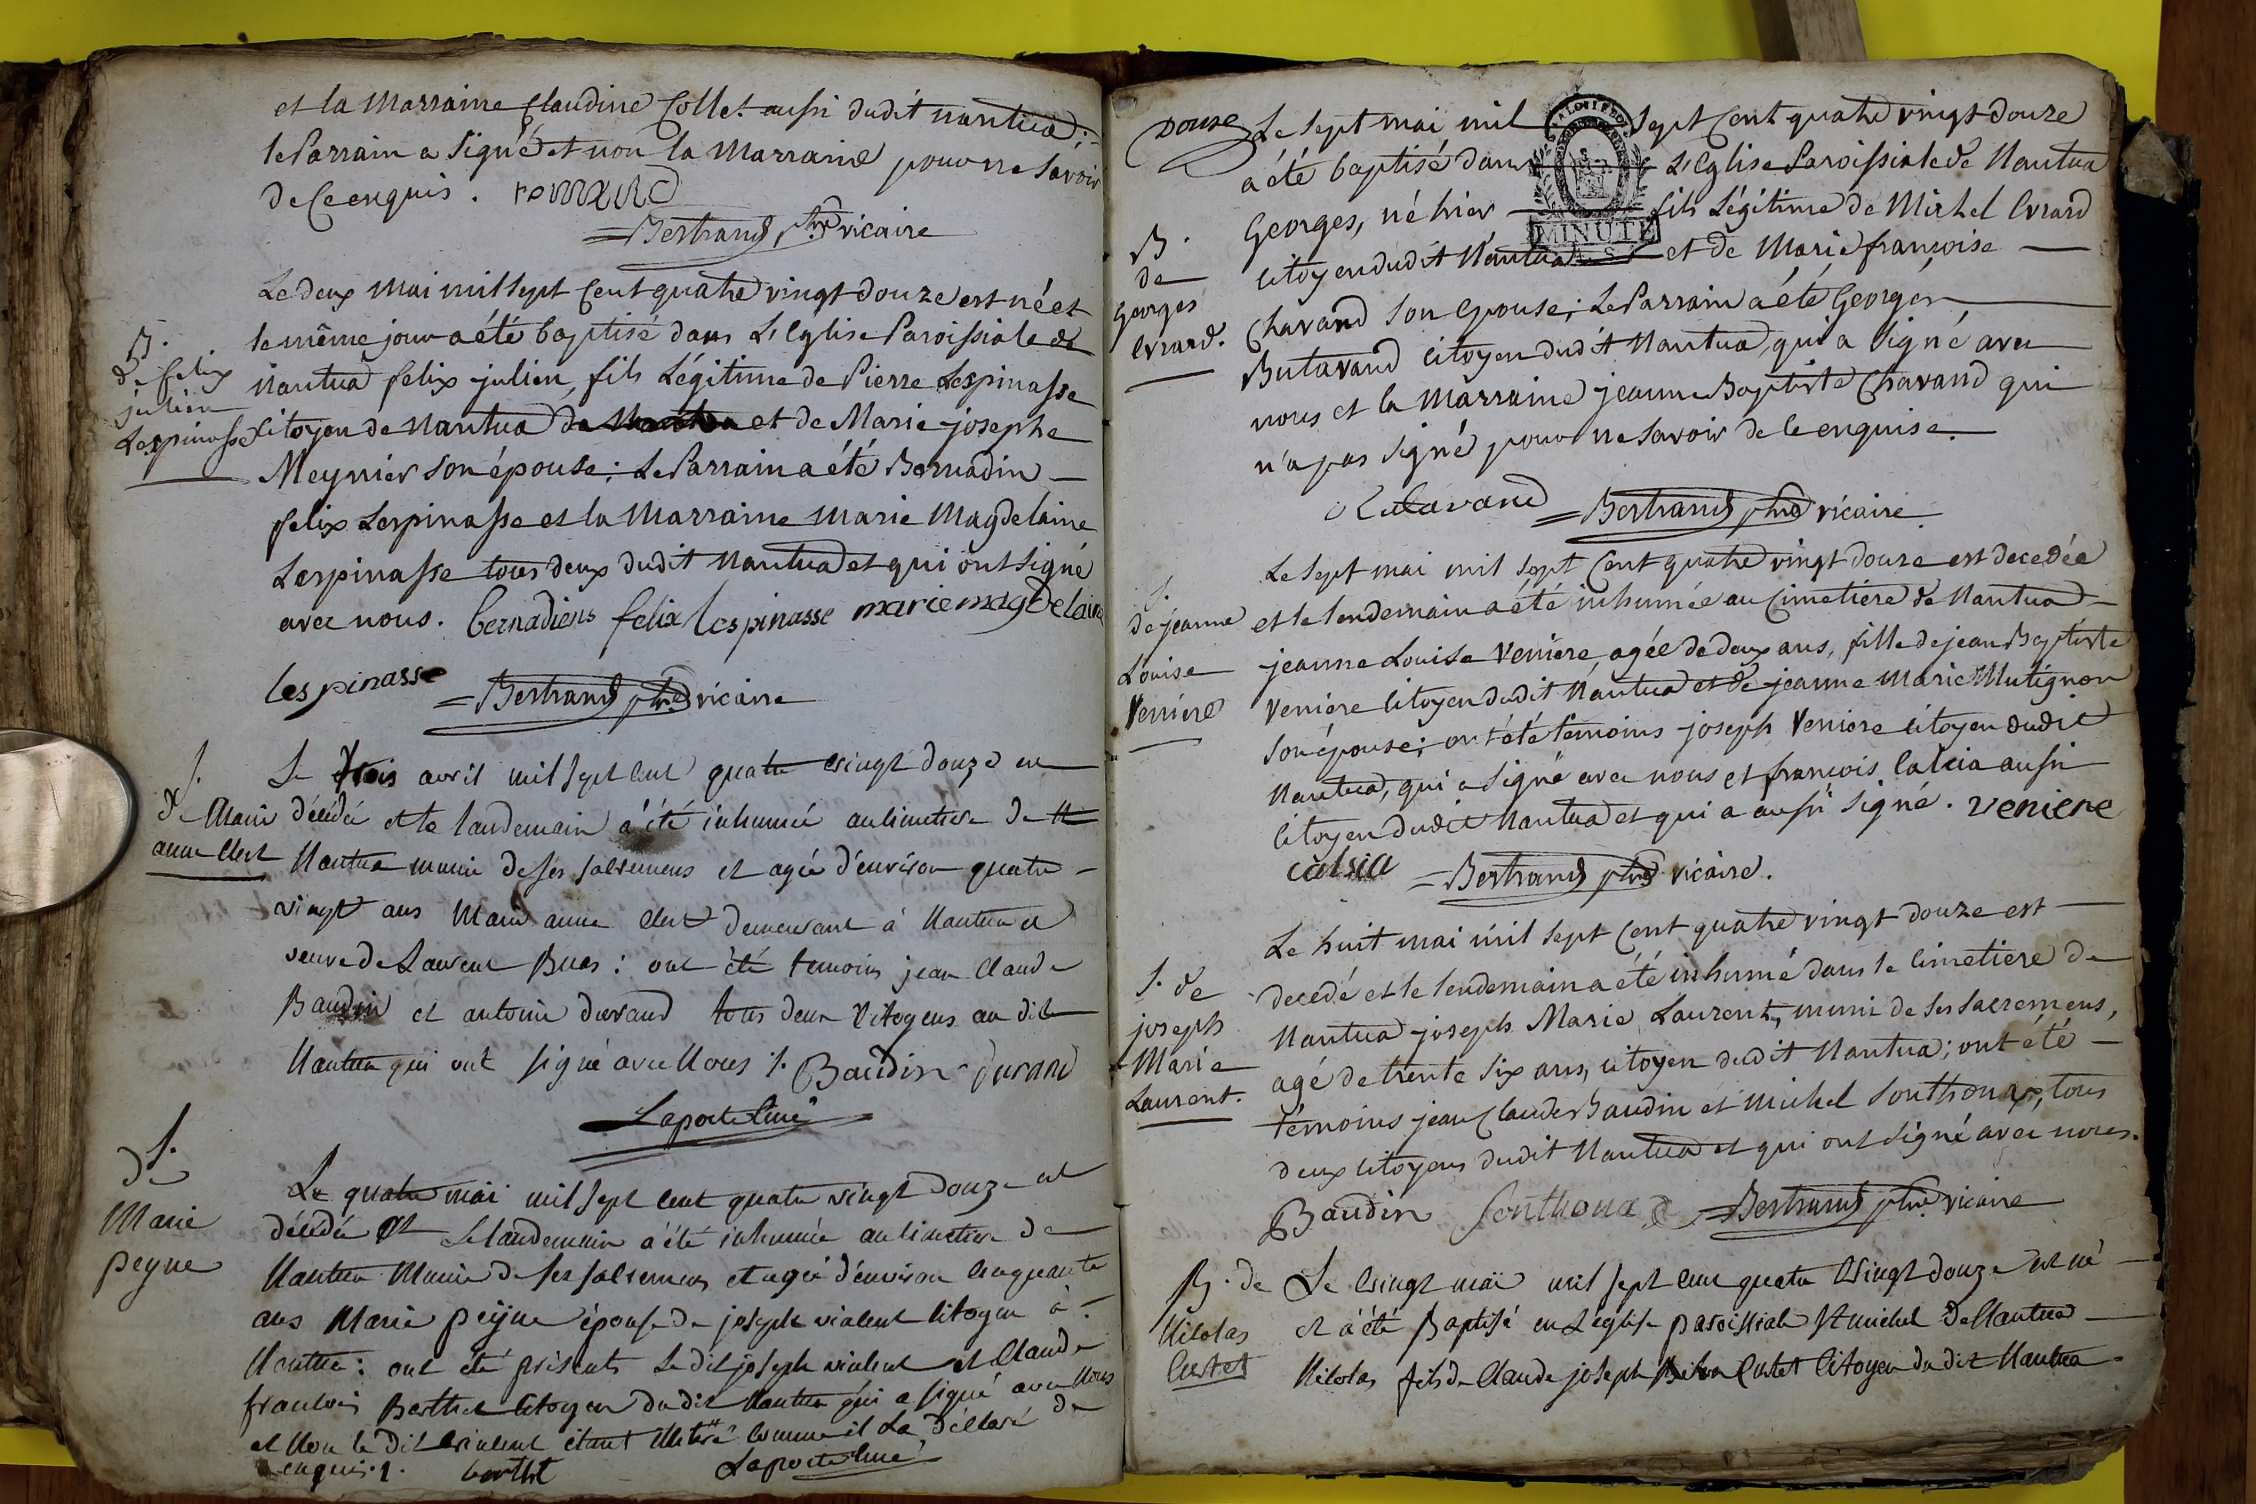 et la Marraine Claudine Collet aussi dudit nantua;
le Parrain a signé et non la Marraine pour ne savoir
de ce enquis.
Bertrand ptre vicaire
Le deux Mai mil sept cent quatre vingt douze est né et
le même jour a été baptisé dans L'Eglise Paroissiale de
B.
de felix
julien
Lespinasse
Nantua felix julien, fils Légitime de Pierre Lespinasse
citoyen de Nantua et de Marie josephe
Meynier son épouse; Le Parrain a été Bernadin
felix Lespinasse et la Marraine Marie Magdelaine
Lespinasse tous deux dudit Nantua et qui ont signé
avec nous. bernadiens felix lespinasse marie magdelaine
lespinasse
Bertrand ptre vicaire
S.
de Marie
anne Clert
Le trois avril mil sept cent quatre vingt douze est
décédée et le landemain a été inhumée au cimetiere de
Nantua munie de ses sacremens et agée d'environ quatre
vingt ans Marie anne Clert demeurant à Nantua et
veuve de Laurent Buas: ont été temoins jean Claude
Baudin et antoine durand tous deux Citoyens au dit
Nantua qui ont signé avec Nous ./. Baudin durand
Laporte Curé
S.
de
Marie
peyne
Le quatre mai mil sept cent quatre vingt douze est
décédée et le landemain a été inhumée au cimetiere de
Nantua Munie de ses sacremens et agée d'environ cinquante
ans Marie peyne épouse de joseph violent Citoyen à
Nantua: ont été présents le dit joseph violent et Claude
francois Berthet Citoyen du dit Nantua qui a signé avec Nous
et Non le dit violent étant illiteré comme il l'a déclaré de
enquis ./. berthet Laporte Curé
Douze
Le sept mai mil sept cent quatre vingt douze
a été baptisé dans L'Eglise Paroissiale de Nantua
MINUTE
B.
de
Georges
Evrard.
Georges, né hier fils Légitime de Michel Evrard
citoyen dudit Nantua et de Marie françoise
Chavand son epouse; Le Parrain a été Georges
Butavand citoyen dudit Nantua, qui a signé avec
nous et la Marraine jeanne Baptiste Chavand qui
n'a pas signé pour ne savoir de ce enquise.
Butavand Bertrand ptre vicaire
S.
de jeanne
Louise
Veniere
Le sept mai mil sept cent quatre vingt douze est decedée
et le lendemain a été inhumée au Cimetiere de Nantua
jeanne Louise Veniere, agée de deux ans, fille de jean Baptiste
Veniere citoyen dudit Nantua et de jeanne Marie Mutignon
son épouse; ont été témoins joseph Veniere citoyen dudit
Nantua, qui a signé avec nous et françois Calcia aussi
citoyen dudit Nantua et qui a aussi signé. veniere
calsia Bertrand ptre vicaire.
S. de
joseph
Marie
Laurent.
Le huit mai mil sept cent quatre vingt douze est
decedé et le lendemain a été inhumé dans le cimetiere de
Nantua joseph Marie Laurent, muni de ses sacremens,
agé de trente six ans, citoyen dudit Nantua; ont été
témoins jean Claude Baudin et Michel Sonthonax, tous
deux citoyens dudit Nantua et qui ont signé avec nous.
Baudin Sonthonax Bertrand ptre vicaire
B. de
Nicolas
Custet
Le vingt mai mil sept cent quatre vingt douze est né
et a été Baptisé en L'église paroissiale St michel de Nantua
Nicolas fils de Claude joseph Custet Citoyen du dit Nantua